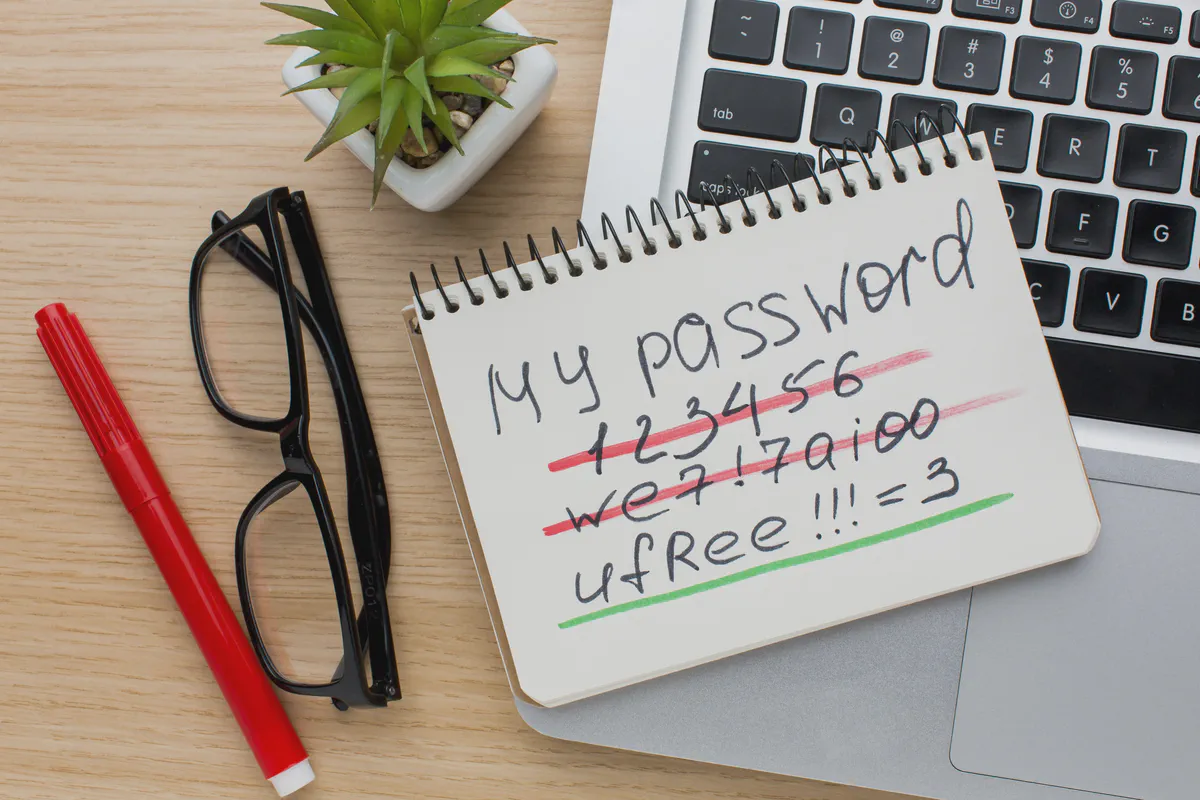 My password
123456
we7!7aioo
ufRee!!!=3
~
!
1
@
2
#
3
$
4
%
5
F3
F4
F5
tab
Q
W
E
R
T
caps lock
D
F
G
C
V
B